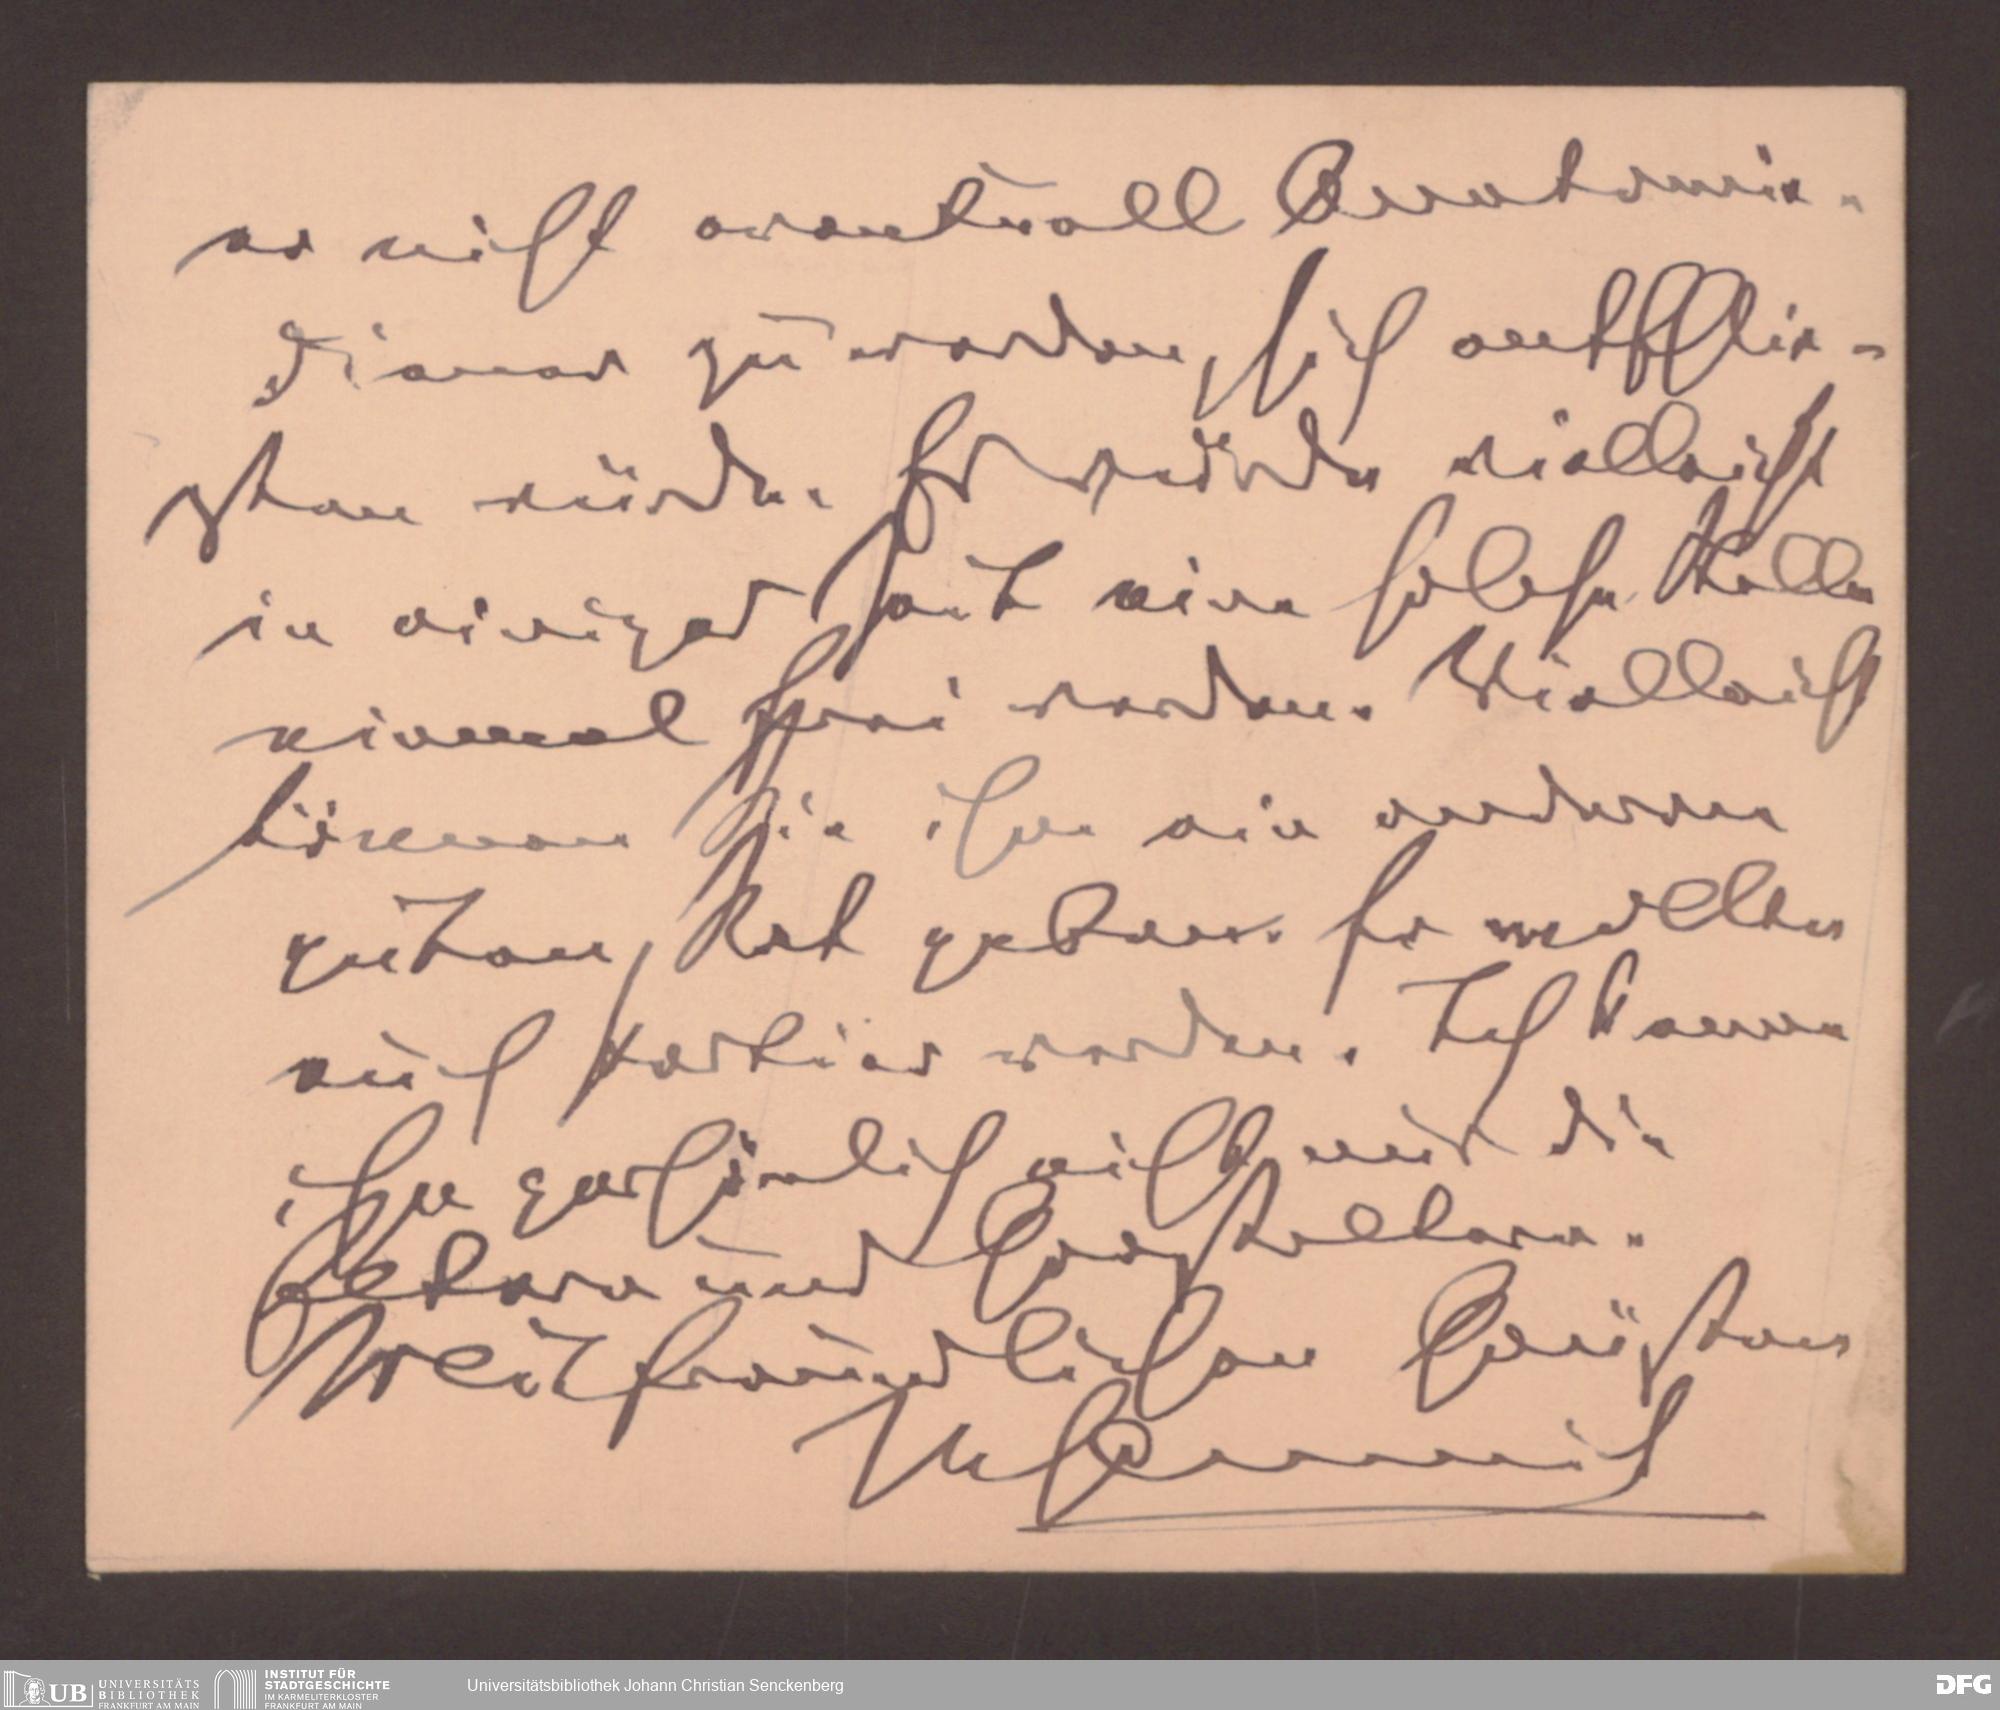 er nicht eventuell Anatomie-
diener zu werden, sich entschlie-
ßen würde. Es würde vielleicht
in einiger Zeit eine solche Stelle
einmal frei werden. Vielleicht
können Sie ihm ein anderen
guten Rat geben. Er wollte
auch Portier werden. Ich kenne
ihn persönlich nicht nur die
Eltern und Großeltern.
Mit freundlichen Grüßen
UB UNIVERSITÄTS
BIBLIOTHEK
FRANKFURT AM MAIN
INSTITUT FÜR
STADTGESCHICHTE
IM KARMELITERKLOSTER
FRANKFURT AM MAIN
Universitätsbibliothek Johann Christian Senckenberg
DFG